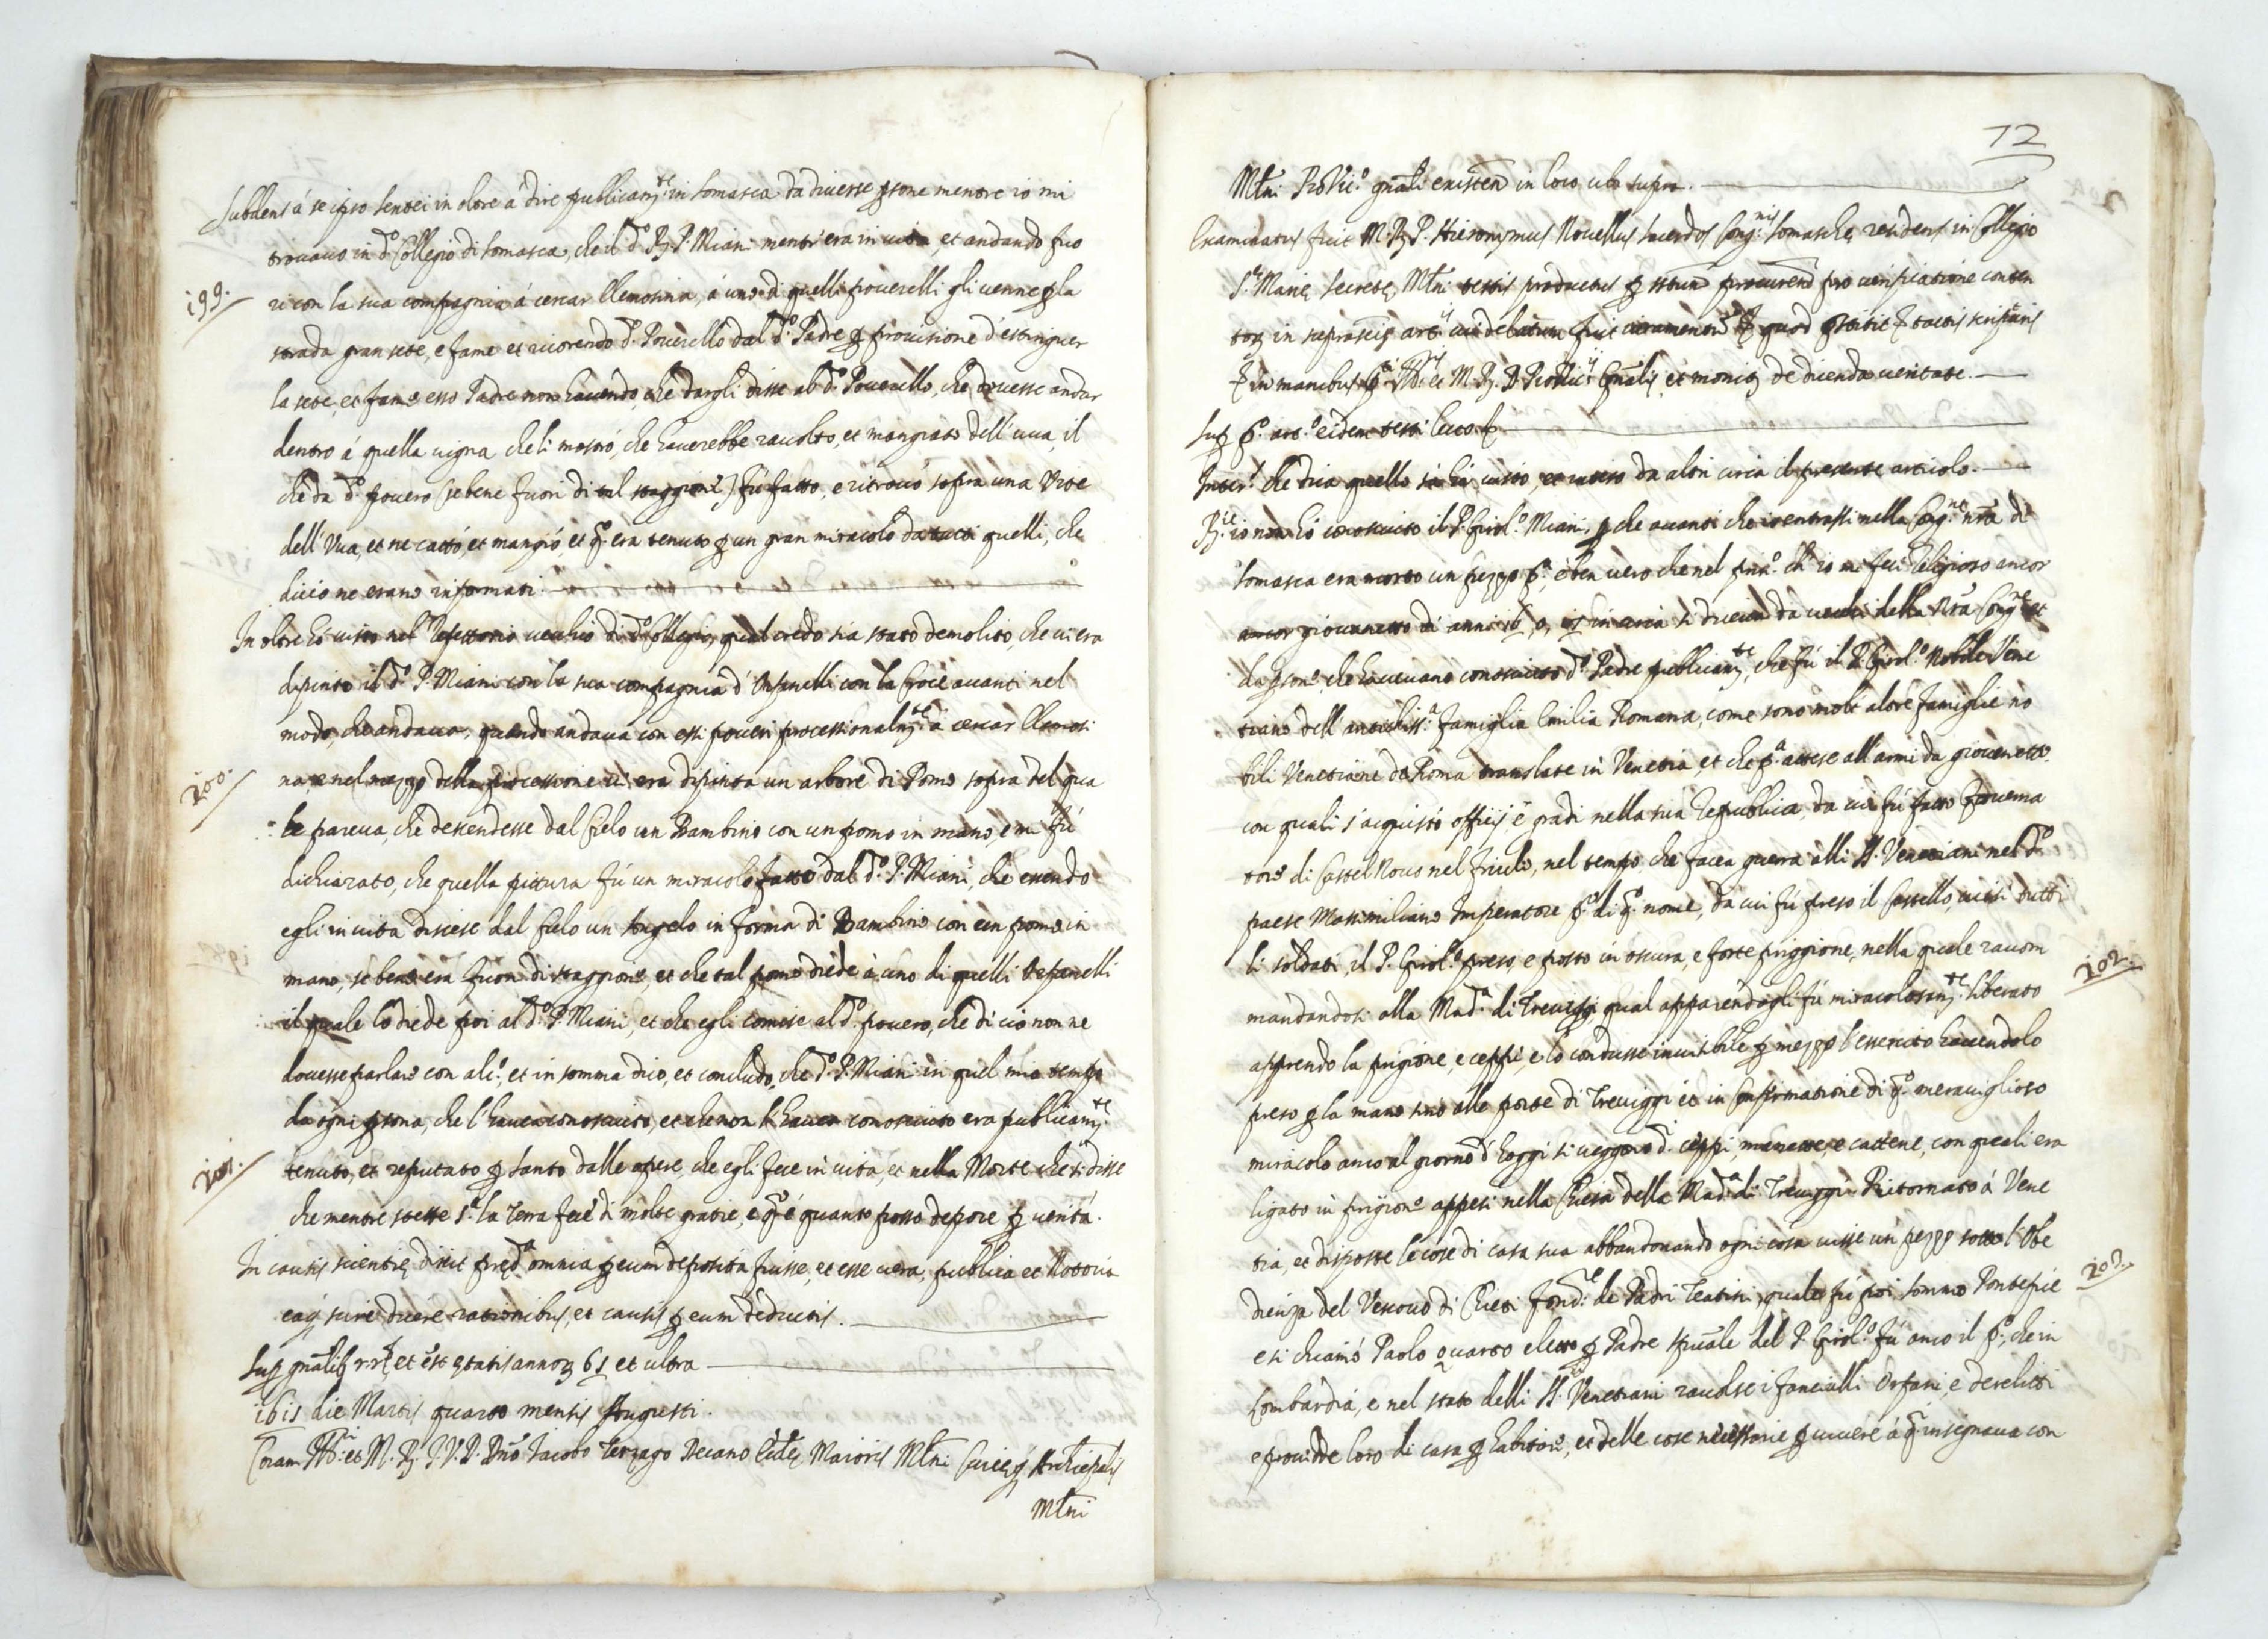 Subdens á se ipso sentei in oltre à dire publicam.te in Somasca da diverse psone mentre io mi
trovavo in d.o Collegio di Somasca, che il d.o R. P. Miani mentr'era in vita, et andando fuo
199.
ri con la sua compagnia á cercar Elemosina, á uno di quelli poverelli gli venne p la
strada gran sete, e fame et ricorrendo d.o Poverello dal d.o Padre p provisione d'estinguer
la sete, et fame esso Padre non havendo, che dargli disse al d.o Poverello, che dovesse andar
dentro á quella vigna che li mostrò, che haverebbe racolto, et mangiato dell'uva, il
che da d.o povero (sebene fuori di tal staggione) fú fatto, e ritrovò sopra una Vite
dell'Vua, et ne cattó, et mangió, et q.o era tenuto p un gran miracolo da tutti quelli, che
di ció ne erano informati.
In oltre hó visto nel Refettorio vecchio di d.o Collegio, qual credo sia stato demolito, che vi era
dipinto il d.o P. Miani con la sua compagnia d'Orfanelli con la Croce avanti nel
modo, che andava, quando andava con essi poveri processionalm.te á cercar Elemosi
200.
na, e nel mezzo della processione vi era dipinto un arbore di Pomo sopra del qua
le pareva, che descendesse dal Cielo un Bambino con un pomo in mano, e mi fú
dichiarato, che quella pittura fú un miracolo fatto dal d.o P. Miani, che essendo
egli in vita discese dal Cielo un Angelo in forma di Bambino con un pomo in
mano, sebene era fuori di staggione, et che tal pomo diede à uno di quelli Orfanelli
il quale lo diede poi al d.o P. Miani, et che egli comise al d.o povero, che di ció non ne
dovesse parlare con alc.o, et in somma dico, et concludo, che d.o P. Miani in quel mio tempo
da ogni psona, che l'haveva conosciuto, et che non l'haveva conosciuto era publicam.te
201.
tenuto, et reputato p santo dalle opere, che egli fece in vita, et nella Morte che si disse
che mentre stette s.a la Terra fece di molte gratie, e q.o é quanto posso depore p verità.
In causis scientię dixit pręd.a omnia p eum deposita fuisse, et esse vera, publica et Notoria
eaq scire dicere rationibus, et causis p eum deductis.
Sup gnalib rr.te et est ętatis annor 61 et ultra
1615 die Martis quarto mensis Augusti.
Coram Ill.ri et M. R. J.V.D. Dno Jacobo Terzago Decano Eccl.ę Maioris Mlni Curięq Archiepalis
Mlni
72
Mlni Pro Vic.o gnali existen in loco ubi supra.
Examinatus fuit M. R. P. Hieronymus Novellus sacerdos Cong.nis Somaschę residens in Collegio
S.tę Marię Secretę Mlni testis productus p
in manibus
et monit de dicenda veritate.
Sup p.o art.o eidem testi lecto
Interr.s che dica quello sà hà visto, et inteso da altri circa il presente articolo.
R.it io non hó conosciuto il P. Girol.o Miani, p che avanti che io entrassi nella Cong.ne nra di
Somasca era morto un pezzo p.a, è ben vero che nel prin.o ch'io mi feci Religioso ancor
ancor giovanetto di anni 16, o, 17 in circa si diceva da vecchi della Nra Cong.ne et
da psone, che havevano conosciuto d.o Padre publicam.te, che fú il P. Girol.o Nobile Vene
tiano dell'antichiss.a famiglia Emilia Romana, come sono molt'altre famiglie no
bili Venetiane da Roma translate in Venetia, et che p.a attese all'armi da giovenetto
con quali s'acquistó officij, e gradi nella sua Republica, da cui fú fatto Governa
tore di Castel Novo nel Friuli, nel tempo, che facea guerra alli SS. Venetiani nel d.o
paese Massimiliano Imperatore p.o di q.o nome, da cui fú preso il Castello, uccisi tutti
202.
li soldati, il P. Girol.o preso, e posto in oscura, e forte priggione, nella quale racom
mandandosi alla Mad.a di Treviggi, qual apparendogli fú miracolosam.te liberato
aprendo la prigione, e ceppi, e lo condusse invisibile p mezzo l'essercito havendolo
preso p la mano sino alle porte di Treviggi et in Confirmatione di q.o meraviglioso
miracolo anco al giorno d'hoggi si veggono d.i ceppi, manette, e cattene, con quali era
ligato in prigione appesi nella Chiesa della Mad.a di Treviggi. Ritornato á Vene
tia, et disposte le cose di casa sua abbandonando ogni cosa visse un pezzo sotto l'Obe
203.
dienza del Vescovo di Chieti fond.re de Padri Teatini, quale fú poi sommo Pontefice
e si chiamò Paolo quarto eletto p Padre spuale del P. Girol.o fú anco il p.o, che in
Lombardia, e nel stato delli SS.ri Venetiani racolse i fanciulli Orfani, e derelitti
e providde loro di casa p habitare, et delle cose necessarie p vivere á q.i insegnava con